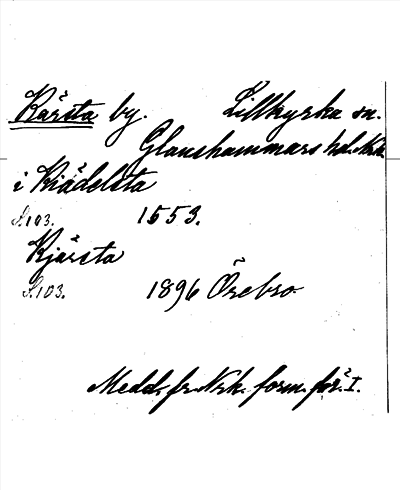 Kärsta by. Lillkyrka sn.
Glanshammars hd. Nrk.
i Kiädelsta
S.103. 1553.
Kjärsta
S.103. 1896 Örebro
Medd. fr. Nrk. forn. för. I.